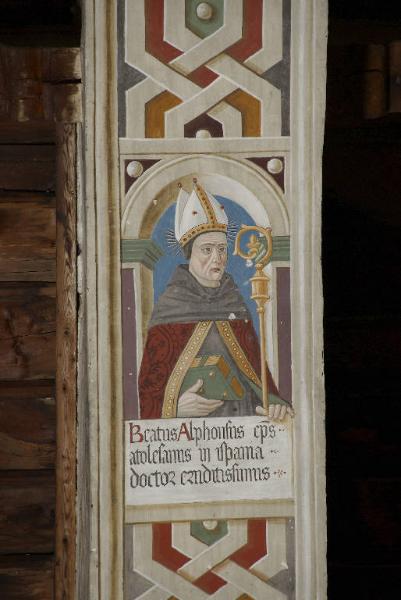 Beatus Alphonsus ep̄s
atolesanus in ispania
doctor eruditissimus